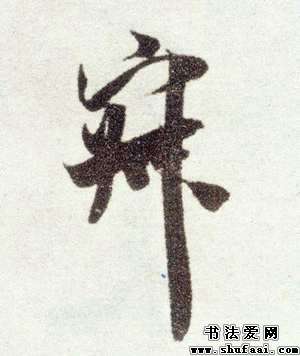 寐
书法爱网
www.shufaai.com